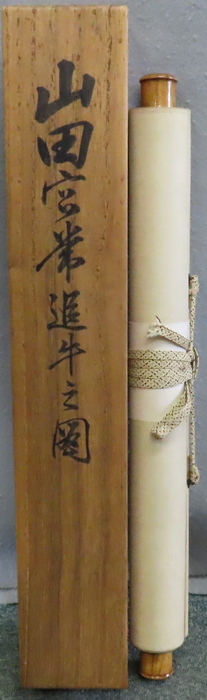 山田宮常追牛之図